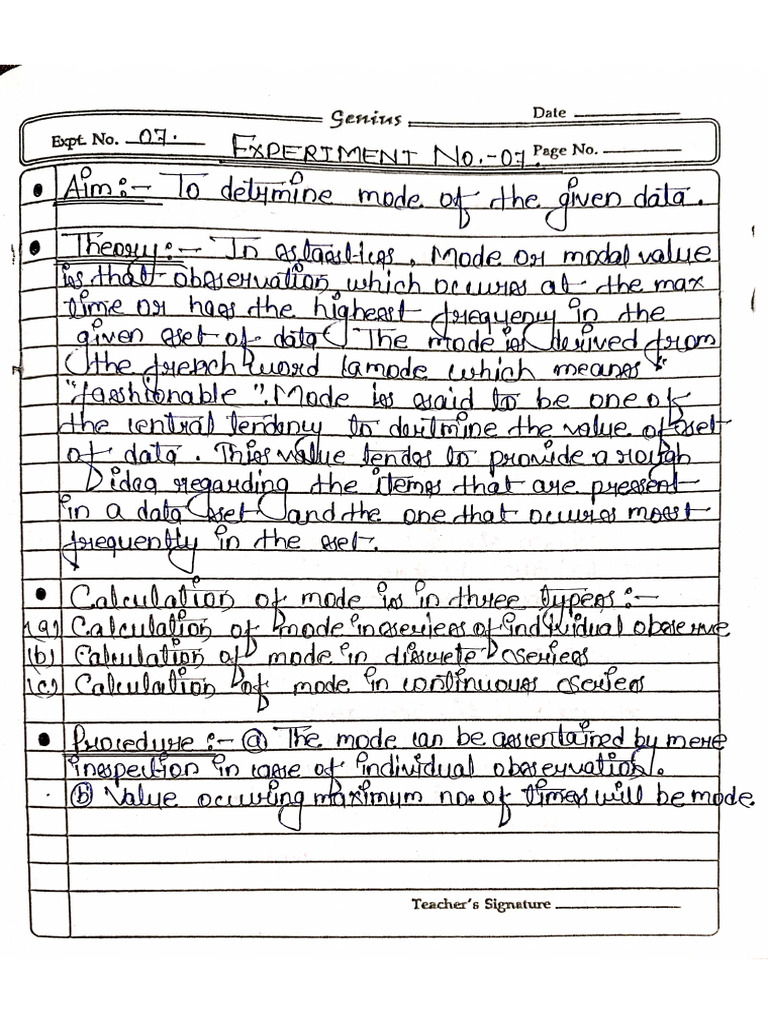 Genius
Date
Expt. No. 07.
EXPERIMENT NO.-07.
Page No.
Aim:- To determine mode of the given data.
Theory:- In statistics, Mode or modal value
is that observation which occurs at the max
time or has the highest frequency in the
given set of data. The mode is derived from
the french word lamode which means
"fashionable". Mode is said to be one of
the central tendency to deritmine the value of set
of data. This value tends to provide a rough
idea regarding the items that are present
in a data set and the one that occures most
frequently in the set.
Calculation of mode is in three types:-
(a) Calculation of mode in series of individual observe
(b) Calculation of mode in discrete series
(c) Calculation of mode in continuous series
Procedure:- (a) The mode can be ascertained by mere
inspection in case of individual observation.
(b) Value occuring maximum no. of times will be mode
Teacher's Signature